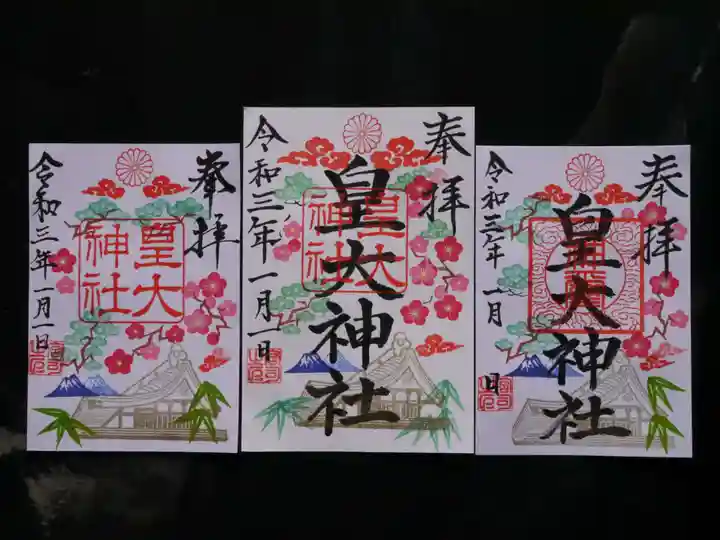 奉拝
皇大
神社
令和三年一月一日
奉拝
皇大神社
皇大
神社
令和三年一月一日
奉拝
皇大神社
令和三年 一月 日